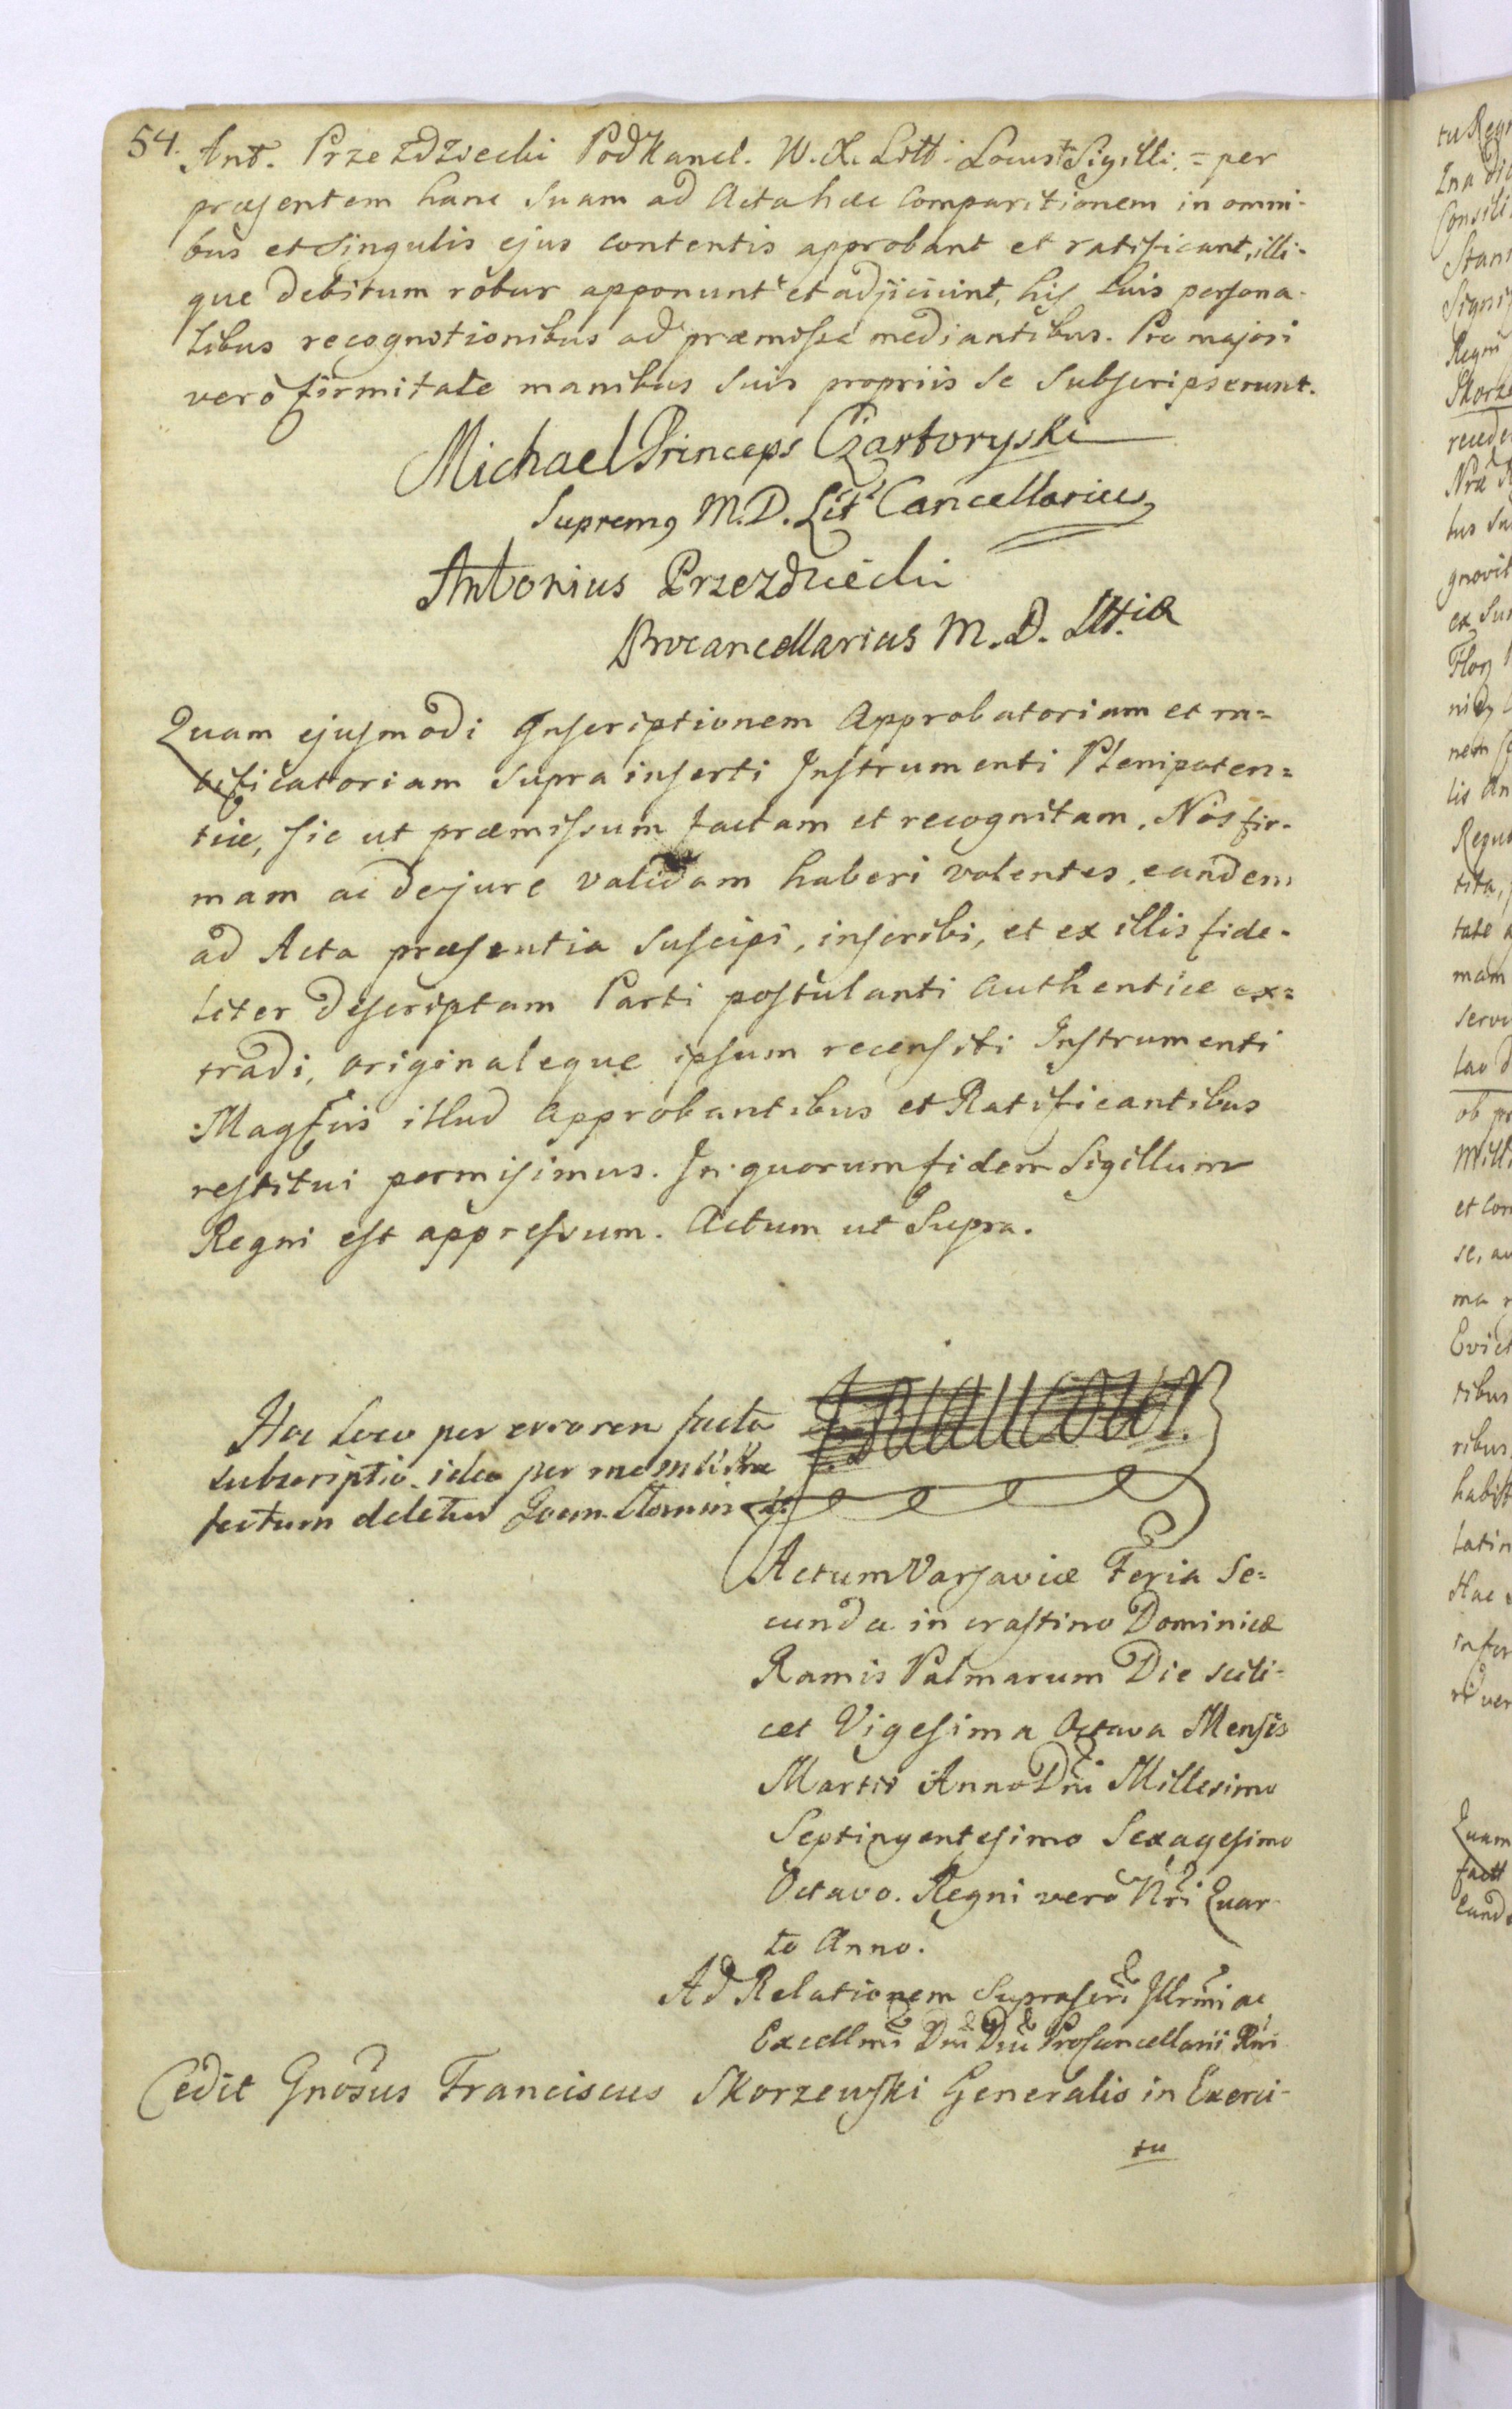 54. Ant. Przezdziecki Podkancl. W. X. Litt: Locus Sigilli. = per
præsentem hanc suam ad Acta hæc comparitionem in omni-
bus et singulis ejus contentis approbant et ratificant, illi-
que debitum robur apponunt et adjiciunt, his suis persona-
libus recognitionibus ad præmissa mediantibus. Pro majori
verò firmitate manibus suis propriis se subscripserunt.
Michael Princeps Czartoryski
Supremq M.D. Lit. Cancellarius
Antonius Przezdziecki
Procancellarius M. D. Litt.iæ
Quam ejusmodi Inscriptionem Approbatoriam et ra=
tificatoriam supra inserti Instrumenti Plenipoten=
tiæ, sic ut præmissum factam et recognitam, Nos fir-
mam ac de jure validam haberi volentes, eandem
ad Acta præsentia suscipi, inscribi, et ex illis fide-
liter descriptam Parti postulanti authentice ex=
tradi, originaleque ipsum recensiti Instrumenti
Magfcis illud Approbantibus et Ratificantibus
restitui permisimus. In quorum fidem Sigillum
Regni est appressum. Actum ut Supra.
Hoc loco per errorem facta
subscriptio ideo per me
deletur
Actum Varsaviæ Feria Se=
cunda in crastino Dominicæ
Ramis Palmarum Die scili-
cet Vigesima Octava Mensis
Martis Anno Dni Millesimo
Septingentesimo Sexagesimo
Octavo. Regni verò Nri Quar
to Anno.
Ad Relationem Suprascri Illrmi ac
Excellmi Dni Dni Procancellarii Rni
Cedit Gnosus Franciscus Skorzewski Generalis in Exerci-
tu